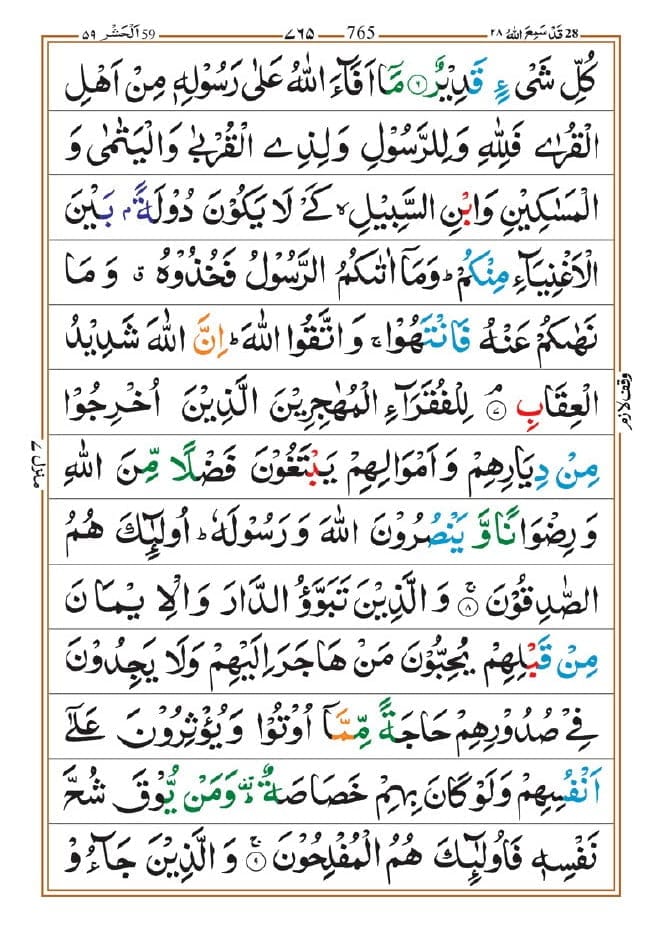 28 قَدْ سَمِعَ اللّٰهُ ٢٨ 765 ٧٦٥ 59 اَلْحَشْر ٥٩
كُلِّ شَیْءٍ قَدِیْرٌ ۟۶ مَاۤ اَفَآءَ اللّٰهُ عَلٰی رَسُوْلِهٖ مِنْ اَهْلِ
الْقُرٰی فَلِلّٰهِ وَ لِلرَّسُوْلِ وَ لِذِی الْقُرْبٰی وَ الْیَتٰمٰی وَ
الْمَسٰكِیْنِ وَ ابْنِ السَّبِیْلِ ۙ كَیْ لَا یَكُوْنَ دُوْلَةًۢ بَیْنَ
الْاَغْنِیَآءِ مِنْكُمْ ؕ وَ مَاۤ اٰتٰىكُمُ الرَّسُوْلُ فَخُذُوْهُ ۗ وَ مَا
نَهٰىكُمْ عَنْهُ فَانْتَهُوْا ۚ وَ اتَّقُوا اللّٰهَ ؕ اِنَّ اللّٰهَ شَدِیْدُ
الْعِقَابِ ۟ۘ۷ لِلْفُقَرَآءِ الْمُهٰجِرِیْنَ الَّذِیْنَ اُخْرِجُوْا
وقف لازم
مِنْ دِیَارِهِمْ وَ اَمْوَالِهِمْ یَبْتَغُوْنَ فَضْلًا مِّنَ اللّٰهِ
منزل ٧
وَ رِضْوَانًا وَّ یَنْصُرُوْنَ اللّٰهَ وَ رَسُوْلَهٗ ؕ اُولٰٓىِٕكَ هُمُ
الصّٰدِقُوْنَ ۟ۚ۸ وَ الَّذِیْنَ تَبَوَّؤُ الدَّارَ وَ الْاِیْمَانَ
مِنْ قَبْلِهِمْ یُحِبُّوْنَ مَنْ هَاجَرَ اِلَیْهِمْ وَ لَا یَجِدُوْنَ
فِیْ صُدُوْرِهِمْ حَاجَةً مِّمَّاۤ اُوْتُوْا وَ یُؤْثِرُوْنَ عَلٰۤی
اَنْفُسِهِمْ وَ لَوْ كَانَ بِهِمْ خَصَاصَةٌ ۫ؕ وَ مَنْ یُّوْقَ شُحَّ
نَفْسِهٖ فَاُولٰٓىِٕكَ هُمُ الْمُفْلِحُوْنَ ۟ۚ۹ وَ الَّذِیْنَ جَآءُوْ